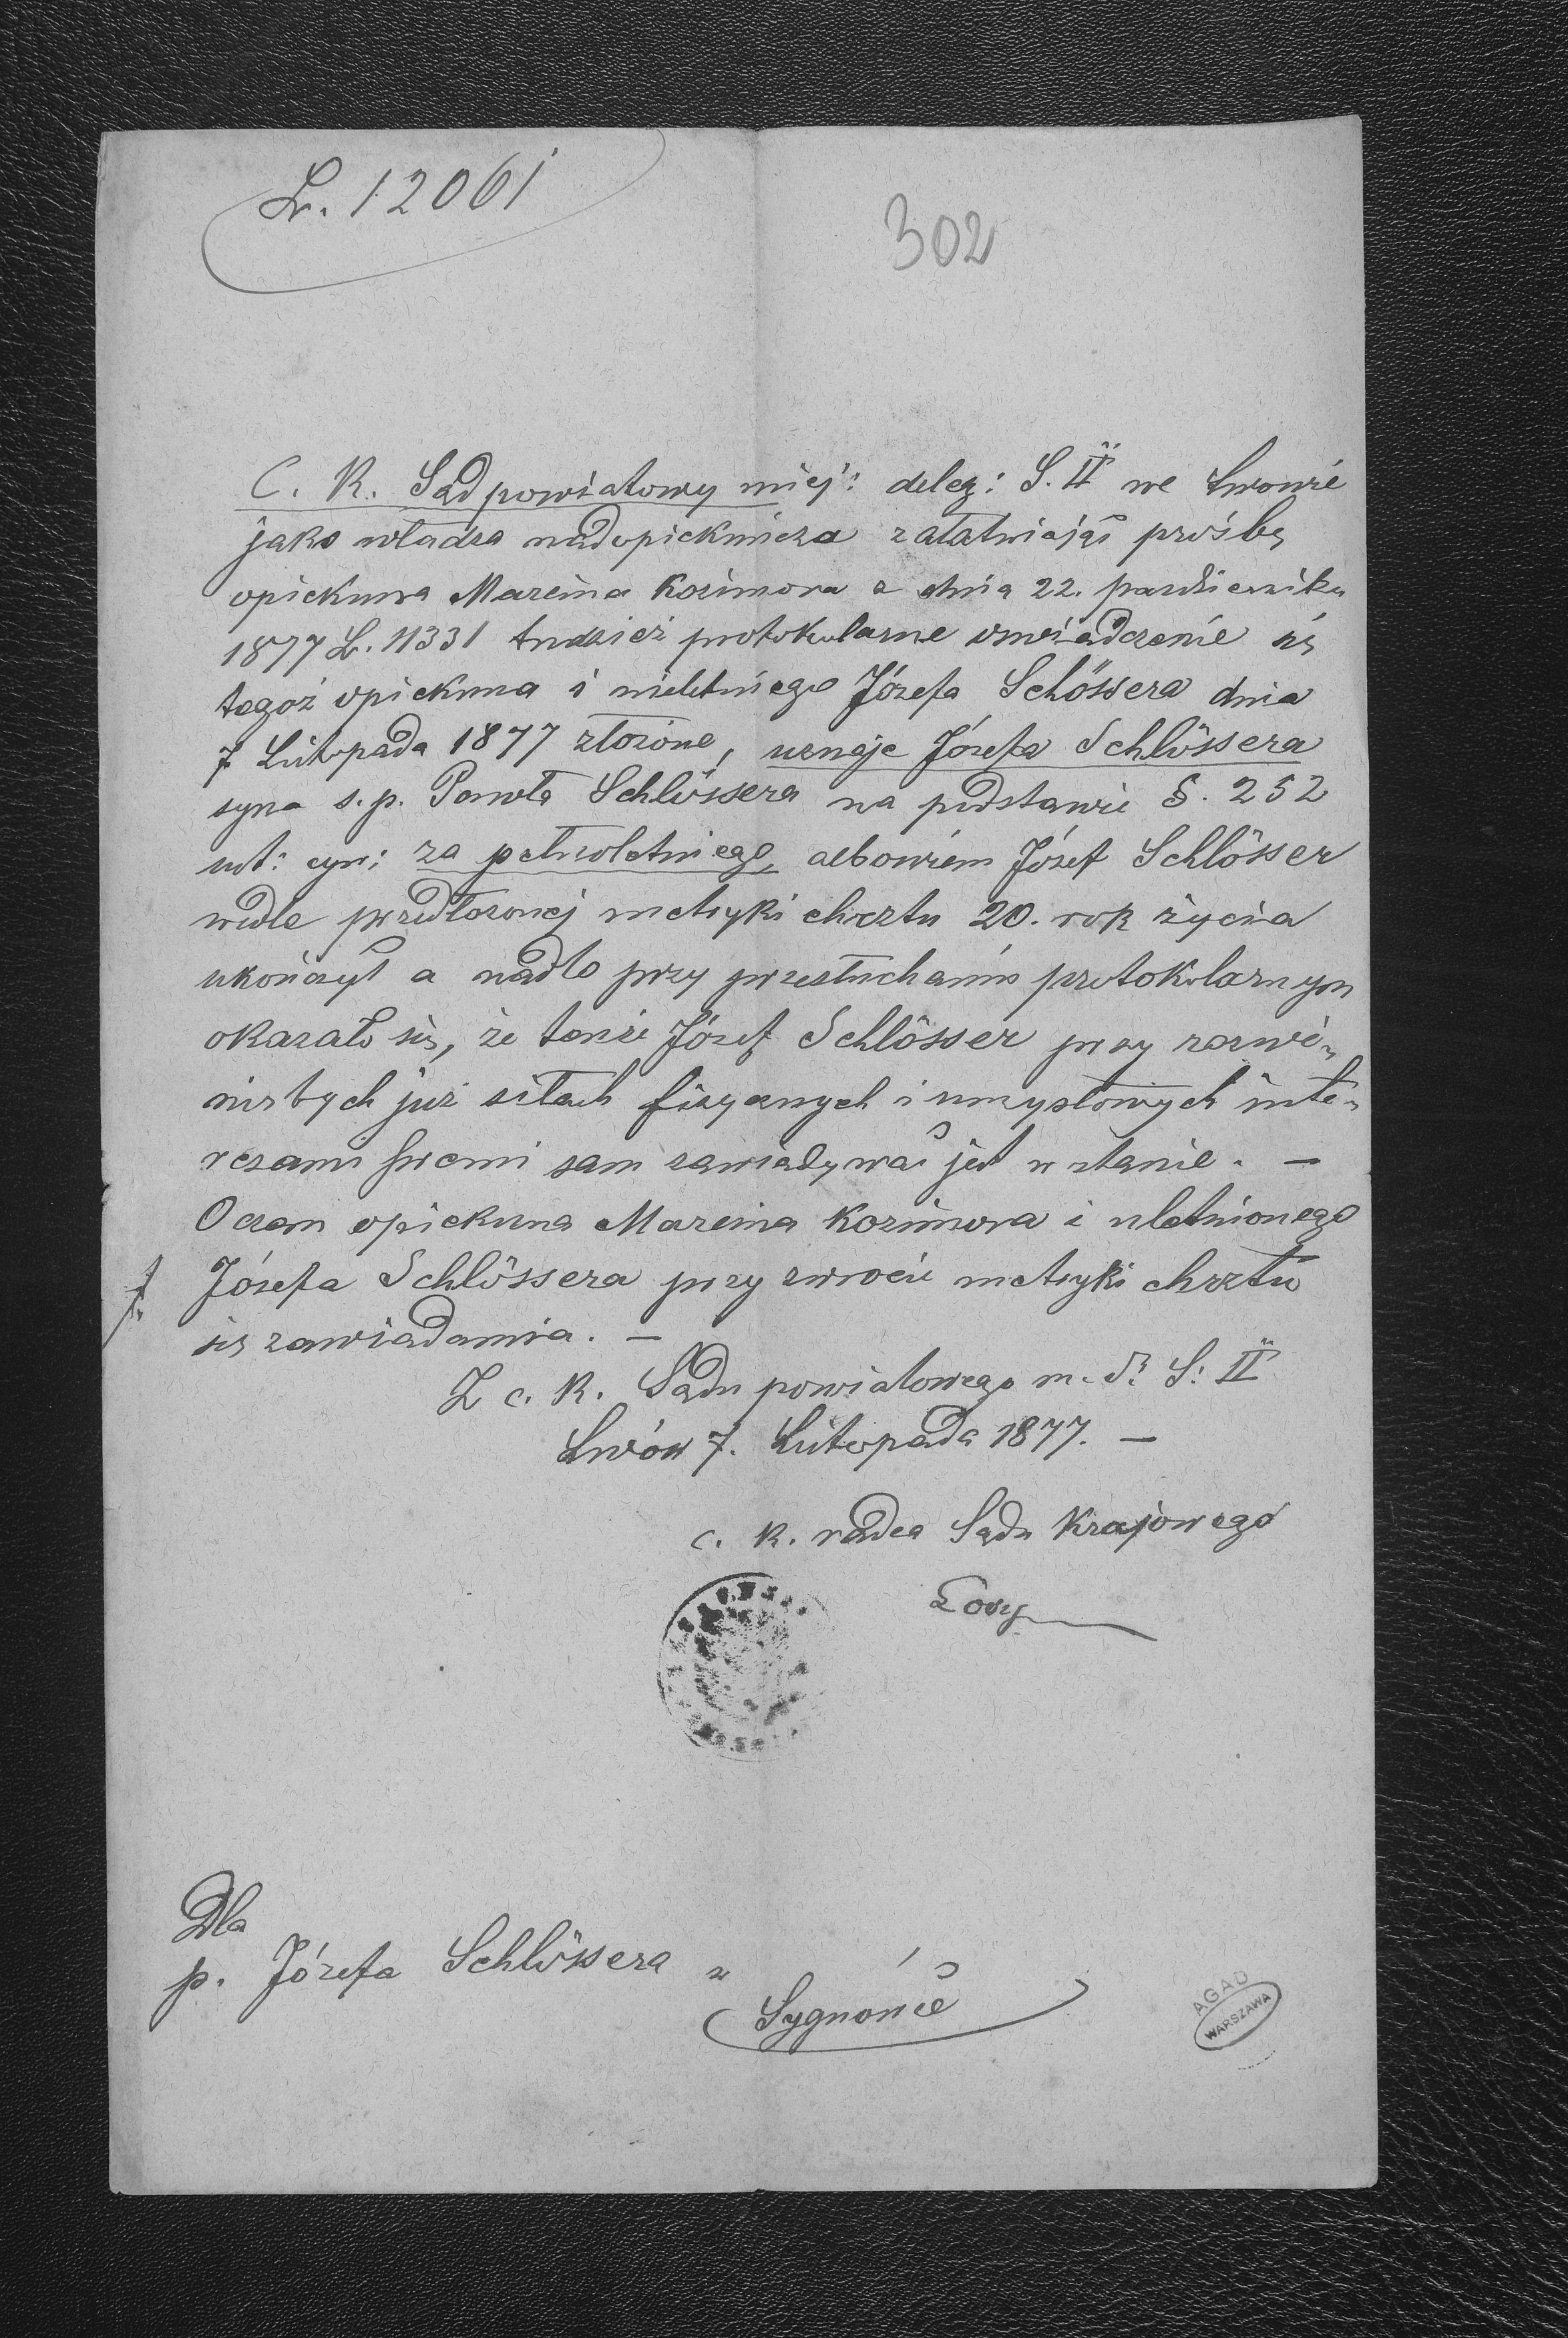 L. 12061
302
C. K. Sąd powiatowy miej: deleg: S. II we Lwowie
jako władza nadopiekuńcza załatwiając prośbę
opiekuna Marcina Kozimora z dnia 22. października
1877 L. 11331 tudzież protokularne oswiadczenie się
tegoż opiekuna i nieletniego Józefa Schössera dnia
7 Listopada 1877 złożone, uznaje Józefa Schlössera
syna s. p. Pawła Schlössera na podstawie §. 252
ust: cyw: za pełnoletniego, albowiem Józef Schlösser
wedle przedłożonej metryki chrztu 20. rok życia
ukończył a nadto przy przesłuchaniu protokolarnym
okazało się, że tenże Józef Schlösser przy rozwi-
niętych już siłach fizycznych i umysłowych inte-
resami swemi sam zawiadywać jest w stanie. —
O czem opiekuna Marcina Kozimora i uletnionego
Józefa Schlössera przy zwrocie metryki chrztu
się zawiadamia. —
Z c. k. Sądu powiatowego m. d. S: II
Lwów 7. Listopada 1877. —
c. k. radca Sądu Krajowego
Dla
p. Józefa Schlössera w
Sygnowie
AGAD
WARSZAWA